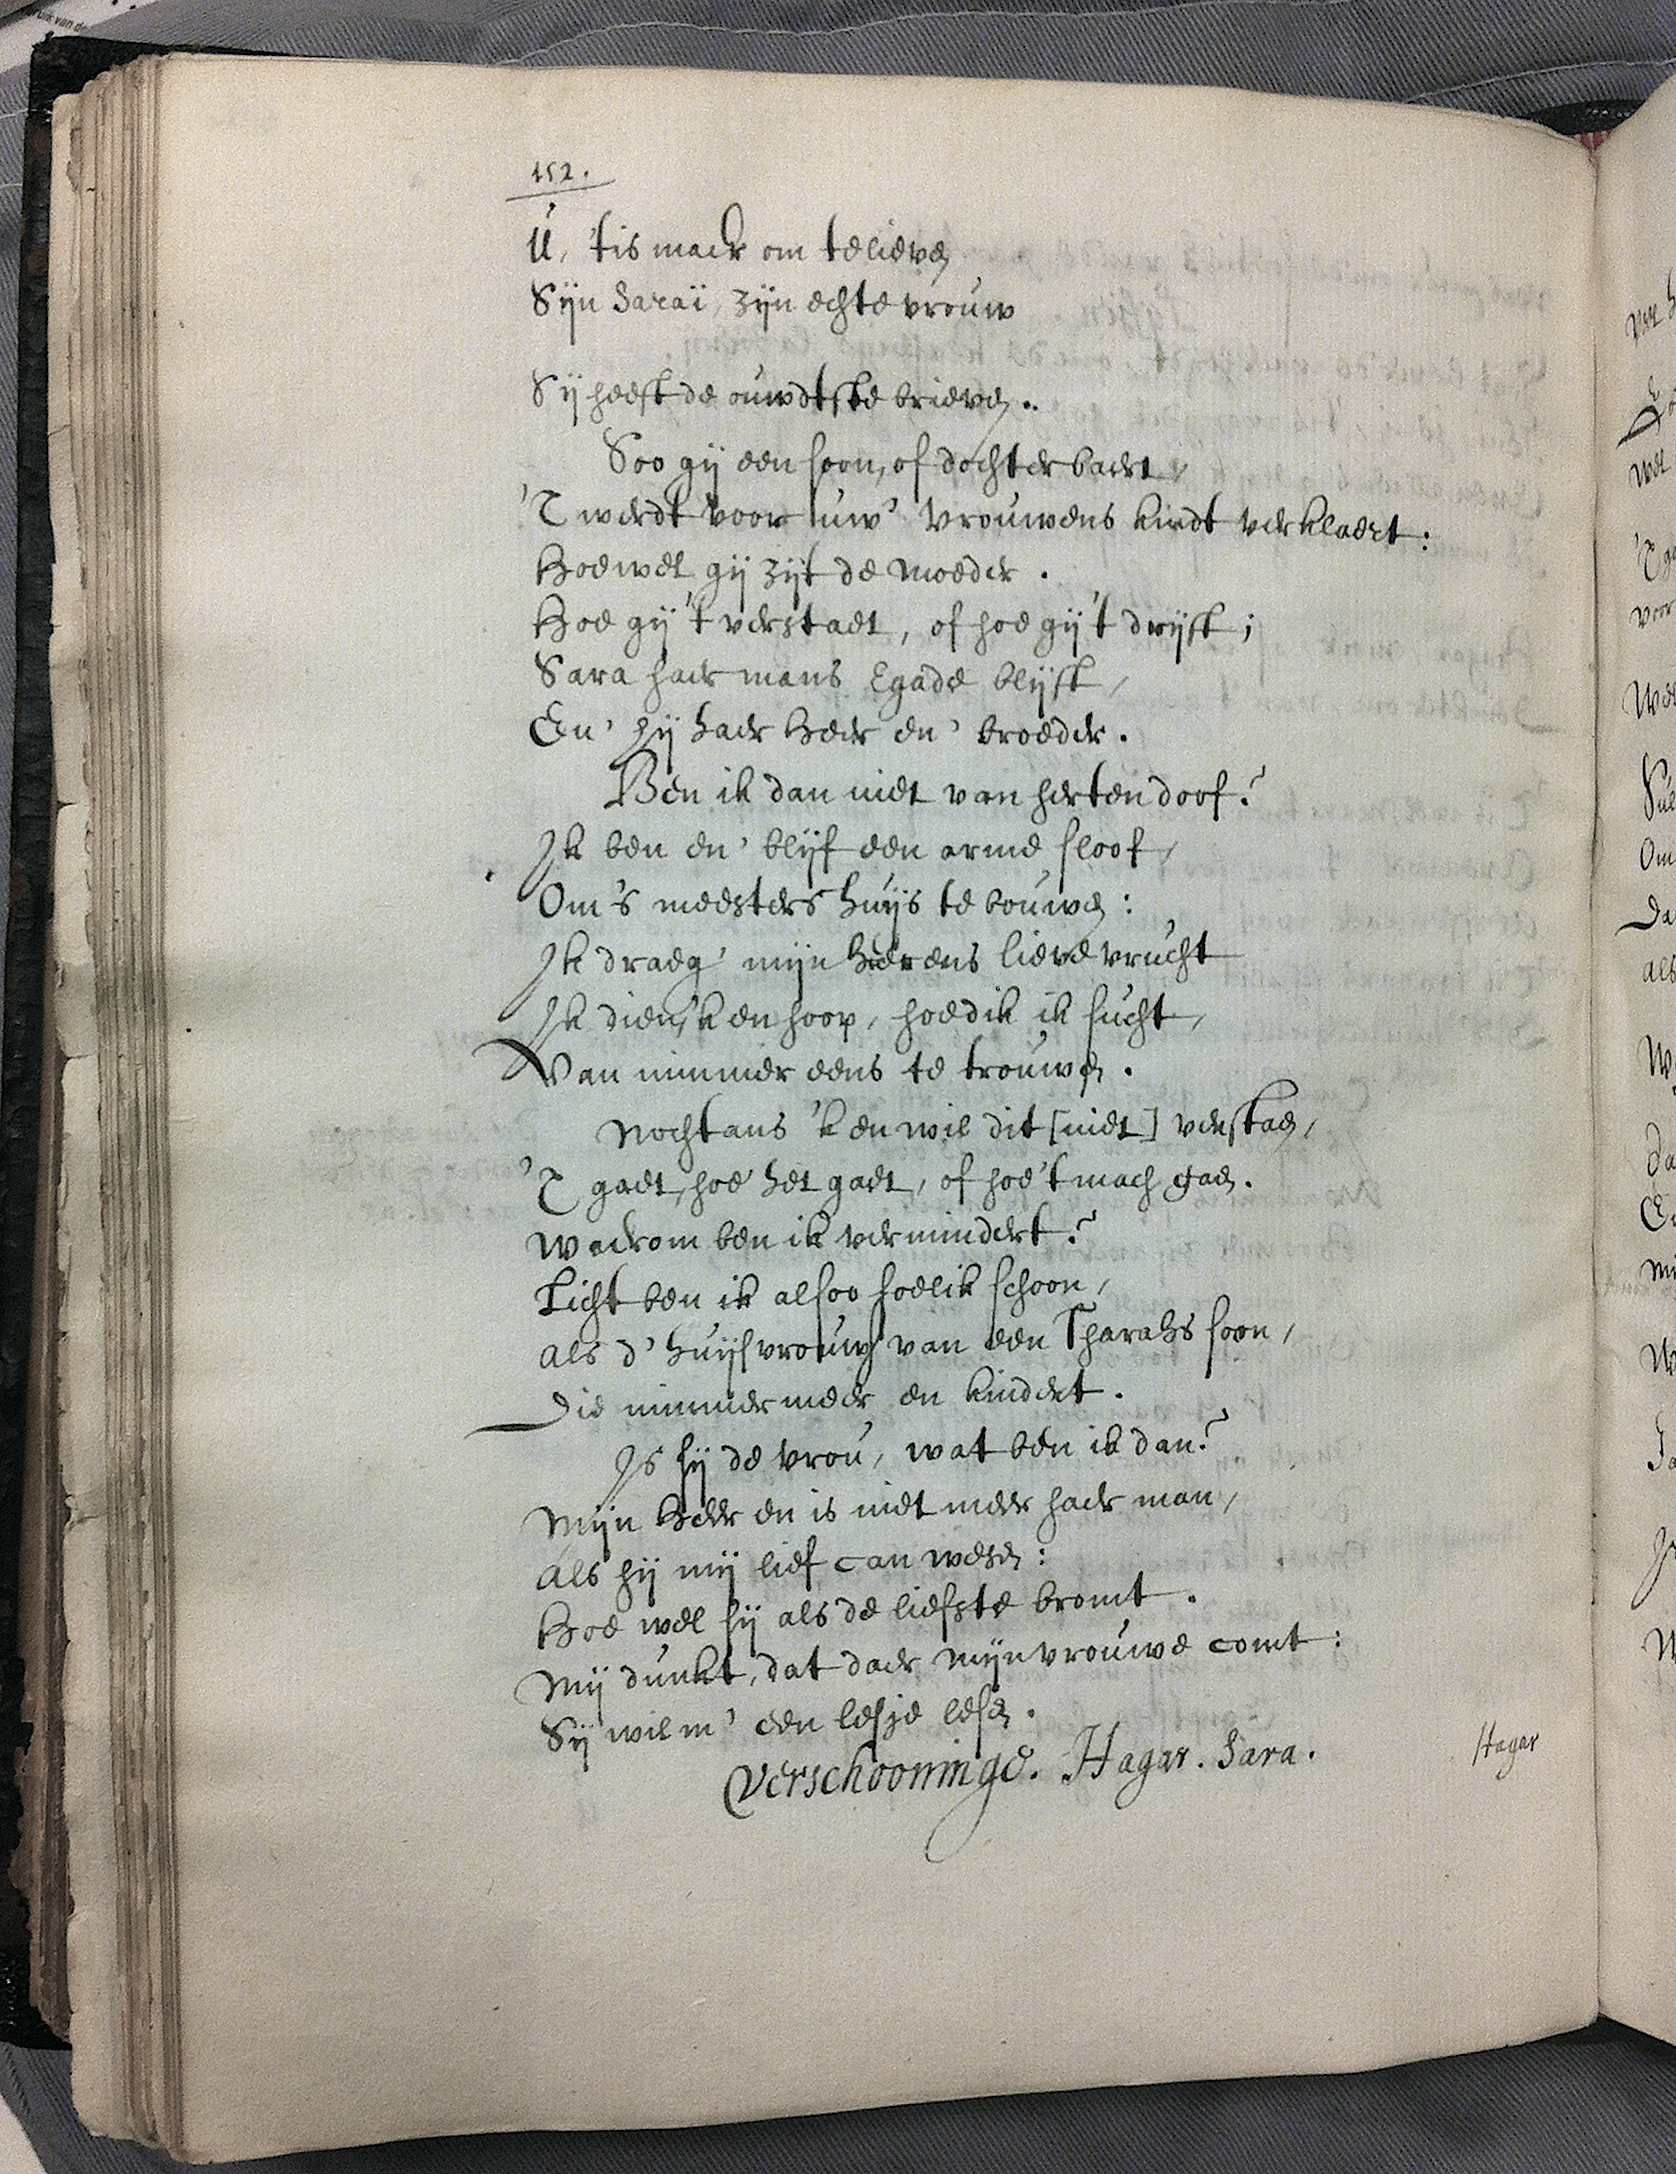 152.
U, 'tis maer om te lieven
Sijn Saraï, zijn echte vrouw
Sij heeft de ouwdtste brieven.
Soo gij een soon, of dochter baert,
'T werdt voor uw' vrouwens kindt verklaert:
Hoewel gij zijt de moeder.
Hoe gij't verstaet, of hoe gij't drijft;
Sara haer mans Egade blijft,
En' hij haer Heer en' broeder.
Ben ik dan niet van herten doof?
Ik ben en' blijf een arme sloof,
Om's meesters huijs te bouwen:
Ik draeg' mijn heerens lieve vrucht
Ik dien, 'k en hoop, hoe dik ik sucht,
Van nimmer eens te trouwen.
Nochtans 'k en wil dit [niet] verstaen,
'T gaet, hoe het gaet, of hoe't mach gaen.
Waerom ben ik vermindert?
Licht ben ik alsoo soelik schoon,
Als d' huijsvrouw van een Tharahs soon,
Die nimmermeer en kindert.
Is sij de vrou, wat ben ik dan?
Mijn Heer en is niet meer haer man,
Als hij mij lief can wesen:
Hoe wel sij als de liefste bromt.
Mij dunkt, dat daer mijn vrouwe comt:
Sij wil m' een lesje lesen.
Verschooninge. Hagar. Sara.
Hagar